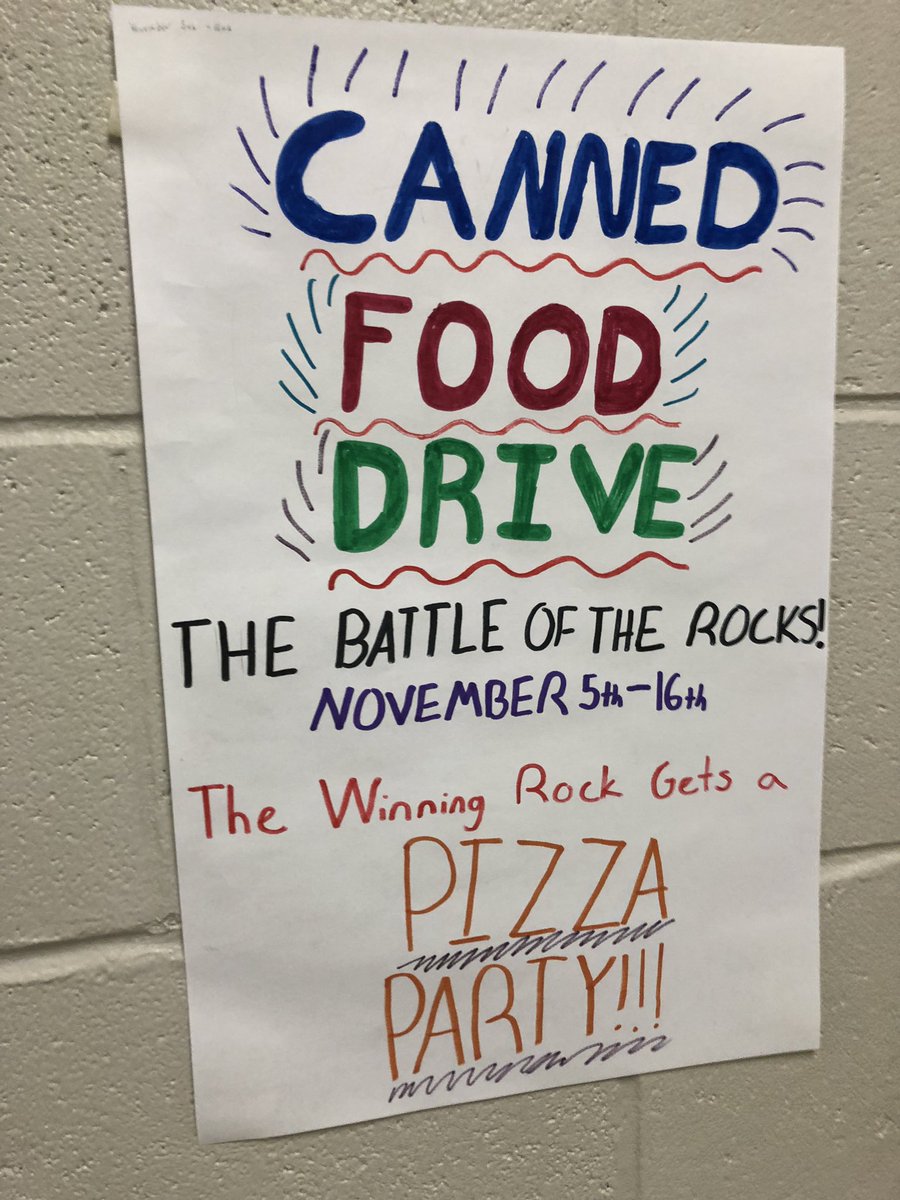 CANNED
FOOD
DRIVE
THE BATTLE OF THE ROCKS!
NOVEMBER 5th-16th
The Winning Rock Gets a
PIZZA
PARTY!!!